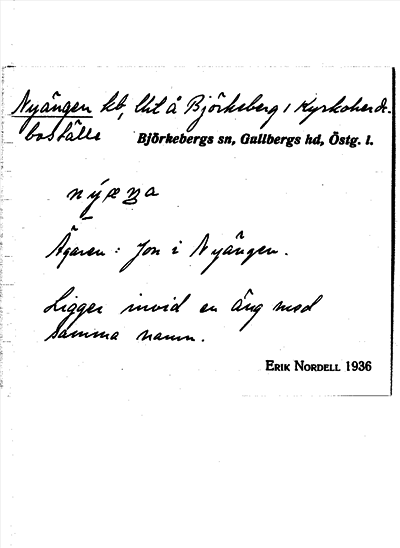 Nyängen lht, lht å Björkeberg 1 Kyrkoherde-
boställe Björkebergs sn, Gullbergs hd, Östg. l.
nýæŋa
Ägaren: Jon i Nyängen.
Ligger invid en äng med
samma namn.
ERIK NORDELL 1936